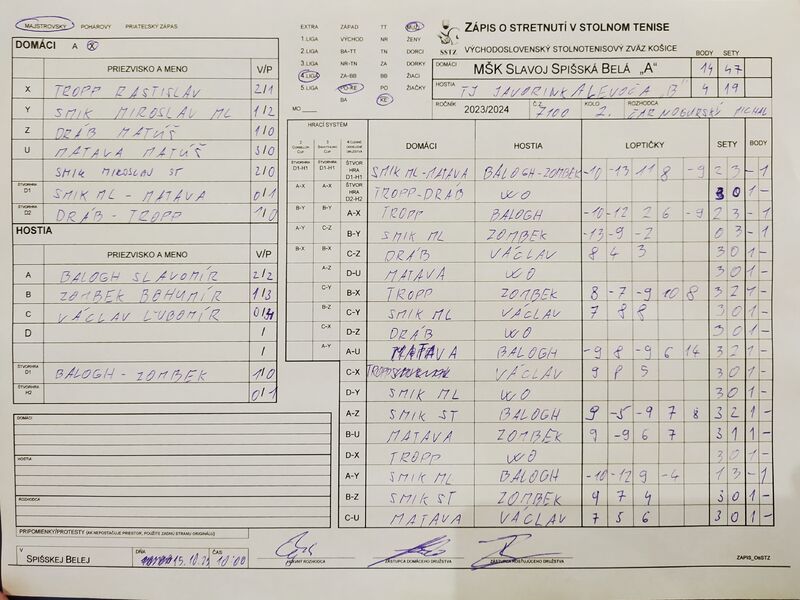 MAJSTROVSKÝ POHÁROVÝ PRIATEĽSKÝ ZÁPAS
EXTRA ZÁPAD TT MUŽI
1. LIGA VÝCHOD NR ŽENY
2. LIGA BA-TT TN DORCI
3. LIGA NR-TN ZA DORKY
4. LIGA ZA-BB BB ŽIACI
5. LIGA PO-KE PO ŽIAČKY
BA KE
MO
SSTZ
ZÁPIS O STRETNUTÍ V STOLNOM TENISE
VÝCHODOSLOVENSKÝ STOLNOTENISOVÝ ZVÄZ KOŠICE
BODY SETY
DOMÁCI MŠK SLAVOJ SPIŠSKÁ BELÁ „A" 14 47
HOSTIA TJ JAVORINKA LEVOČA "B" 4 19
ROČNÍK 2023/2024 Č.Z. 7100 KOLO 2. ROZHODCA ČARNOGURSKÝ MICHAL
DOMÁCI A
PRIEZVISKO A MENO V/P
X TROPP RASTISLAV 2/1
Y SMIK MIROSLAV ML 1/2
Z DRÁB MATÚŠ 1/0
U MATAVA MATÚŠ 3/0
SMIK MIROSLAV ST 2/0
ŠTVORHRA D1 SMIK ML - MATAVA 0/1
ŠTVORHRA D2 DRÁB - TROPP 1/0
HOSTIA
PRIEZVISKO A MENO V/P
A BALOGH SLAVOMÍR 2/2
B ZOMBEK BOHUMÍR 1/3
C VÁCLAV ĽUBOMÍR
D /
/
ŠTVORHRA D1 BALOGH - ZOMBEK 1/0
ŠTVORHRA H2 0/1
DOMÁCI
HOSTIA
ROZHODCA
PRIPOMIENKY/PROTESTY (AK NEPOSTAČUJE PRIESTOR, POUŽITE ZADNÚ STRANU ORIGINÁLU)
V SPIŠSKEJ BELEJ DŇA 15.10.23 ČAS 10:00
HRACÍ SYSTÉM
DOMÁCI HOSTIA LOPTIČKY SETY BODY
ŠTVORHRA D1-H1 SMIK ML-MATAVA BALOGH-ZOMBEK -10 -13 11 8 -9 2 3 - 1
ŠTVORHRA D2-H2 TROPP-DRÁB WO 3 0 1 -
A-X TROPP BALOGH -10 -12 2 6 -9 2 3 - 1
B-Y SMIK ML ZOMBEK -13 -9 -2 0 3 - 1
C-Z DRÁB VÁCLAV 8 4 3 3 0 1 -
D-U MATAVA WO 3 0 1 -
B-X TROPP ZOMBEK 8 -7 -9 10 8 3 2 1
C-Y SMIK ML VÁCLAV 7 8 8 3 0 1 -
D-Z DRÁB WO 3 0 1 -
A-U MATAVA BALOGH -9 8 -9 6 14 3 2 1 -
C-X TROPP VÁCLAV 9 8 5 3 0 1 -
D-Y SMIK ML WO 3 0 1 -
A-Z SMIK ST BALOGH 9 -5 -9 7 8 3 2 1 -
B-U MATAVA ZOMBEK 9 -9 6 7 3 1 1 -
D-X TROPP WO 3 0 1 -
A-Y SMIK ML BALOGH -10 -12 9 -4 1 3 - 1
B-Z SMIK ST ZOMBEK 9 7 4 3 0 1 -
C-U MATAVA VÁCLAV 7 5 6 3 0 1 -
HLAVNÝ ROZHODCA ZÁSTUPCA DOMÁCEHO DRUŽSTVA ZÁSTUPCA HOSŤUJÚCEHO DRUŽSTVA
ZÁPIS_OSSTZ